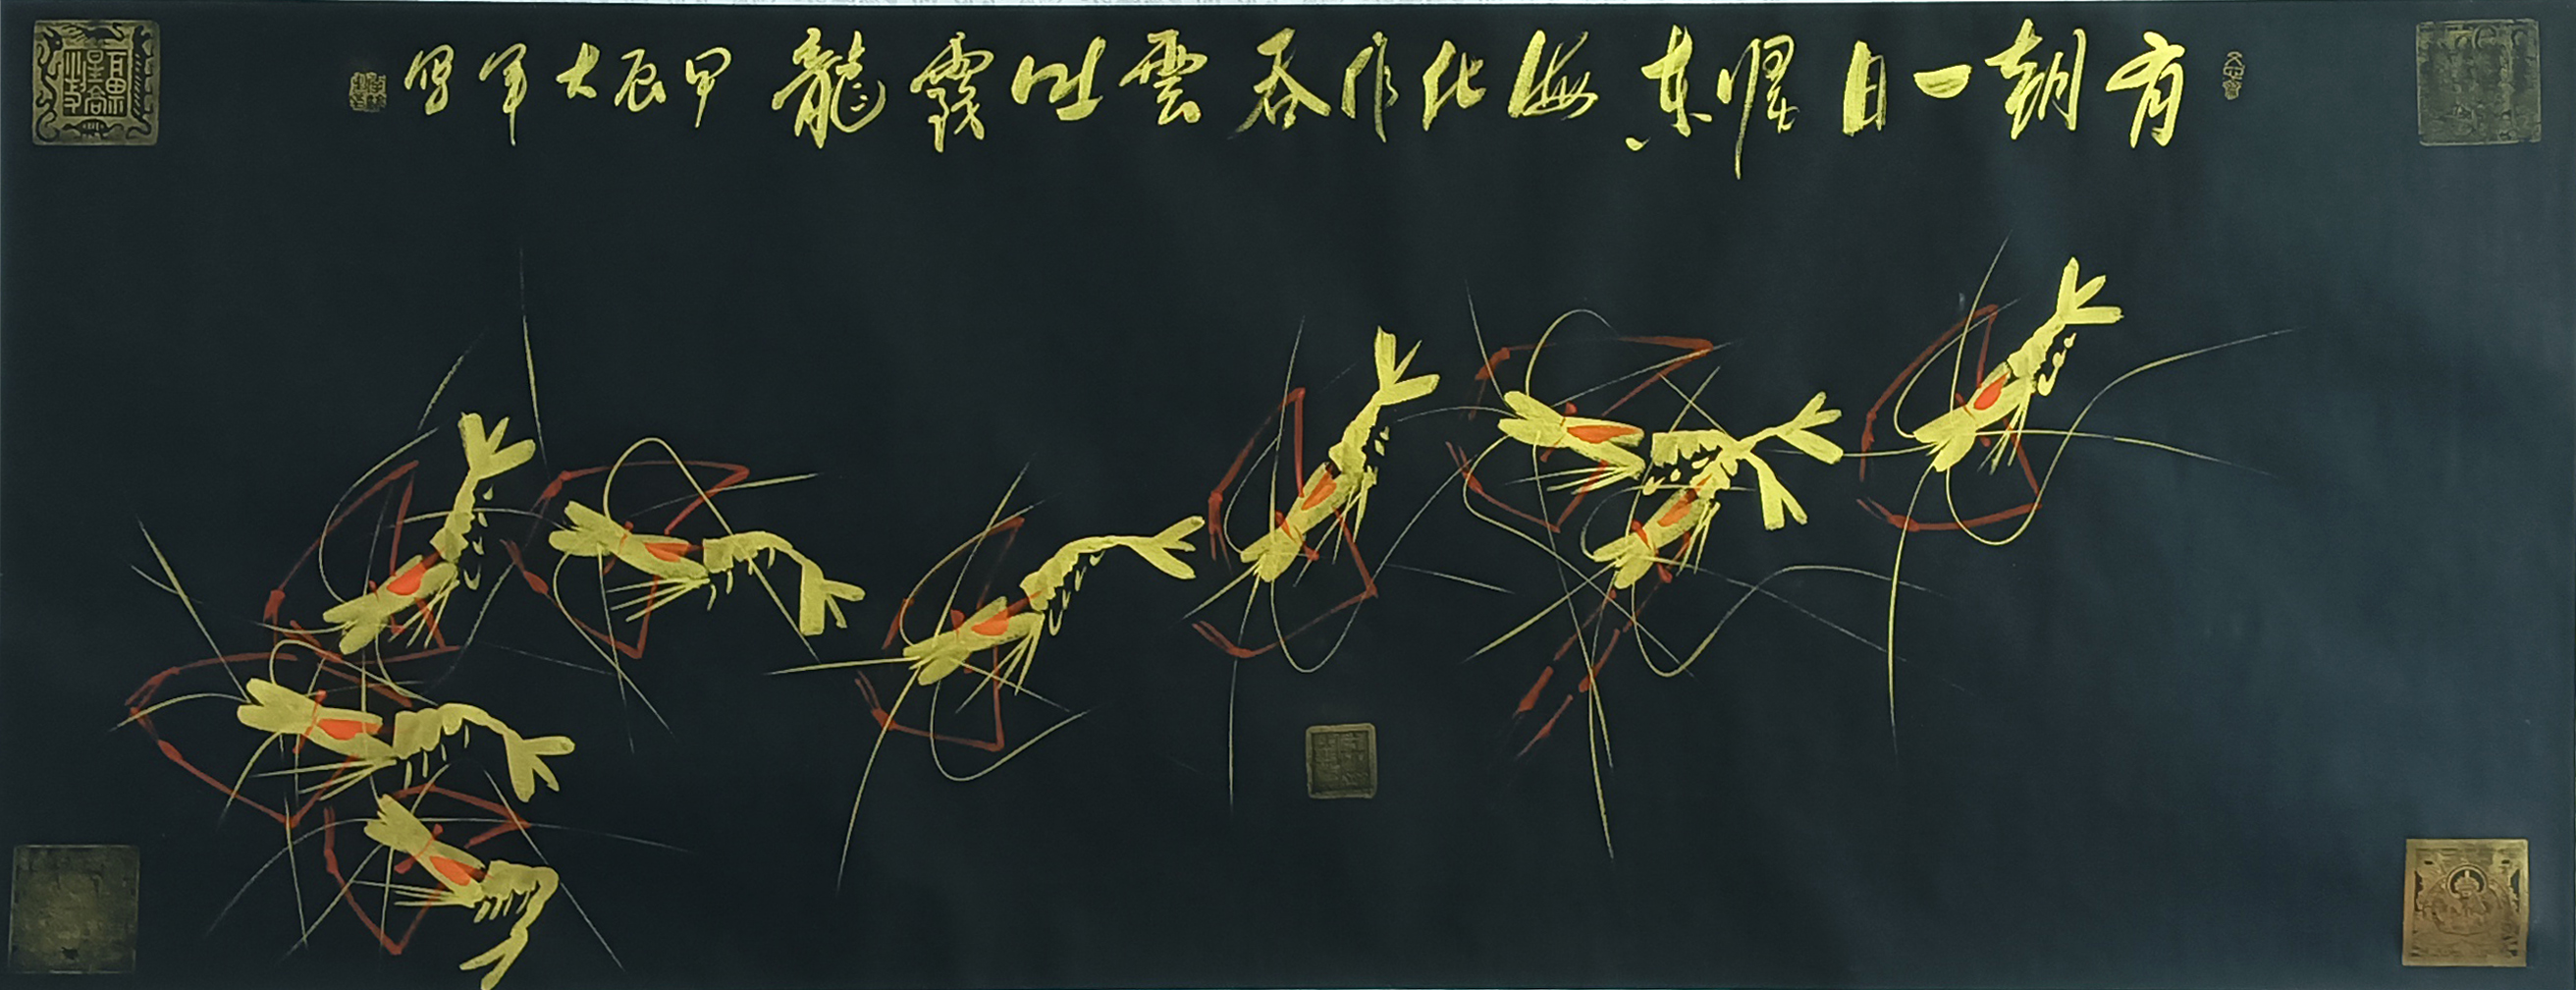 有朝一日躍東海化作吞雲吐霧龍甲辰大军写